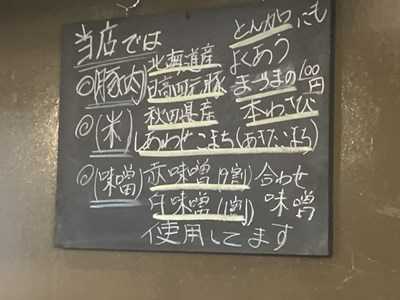 当店では
とんかつにも
よくあう
◎(豚肉) 北海道産
日高四元豚
まつまの100円
本わさび
◎(米) 秋田県産
しあわせこまち(あきたこまち)
◎(味噌) 赤味噌(9割) 合わせ
白味噌(1割) 味噌
使用してます